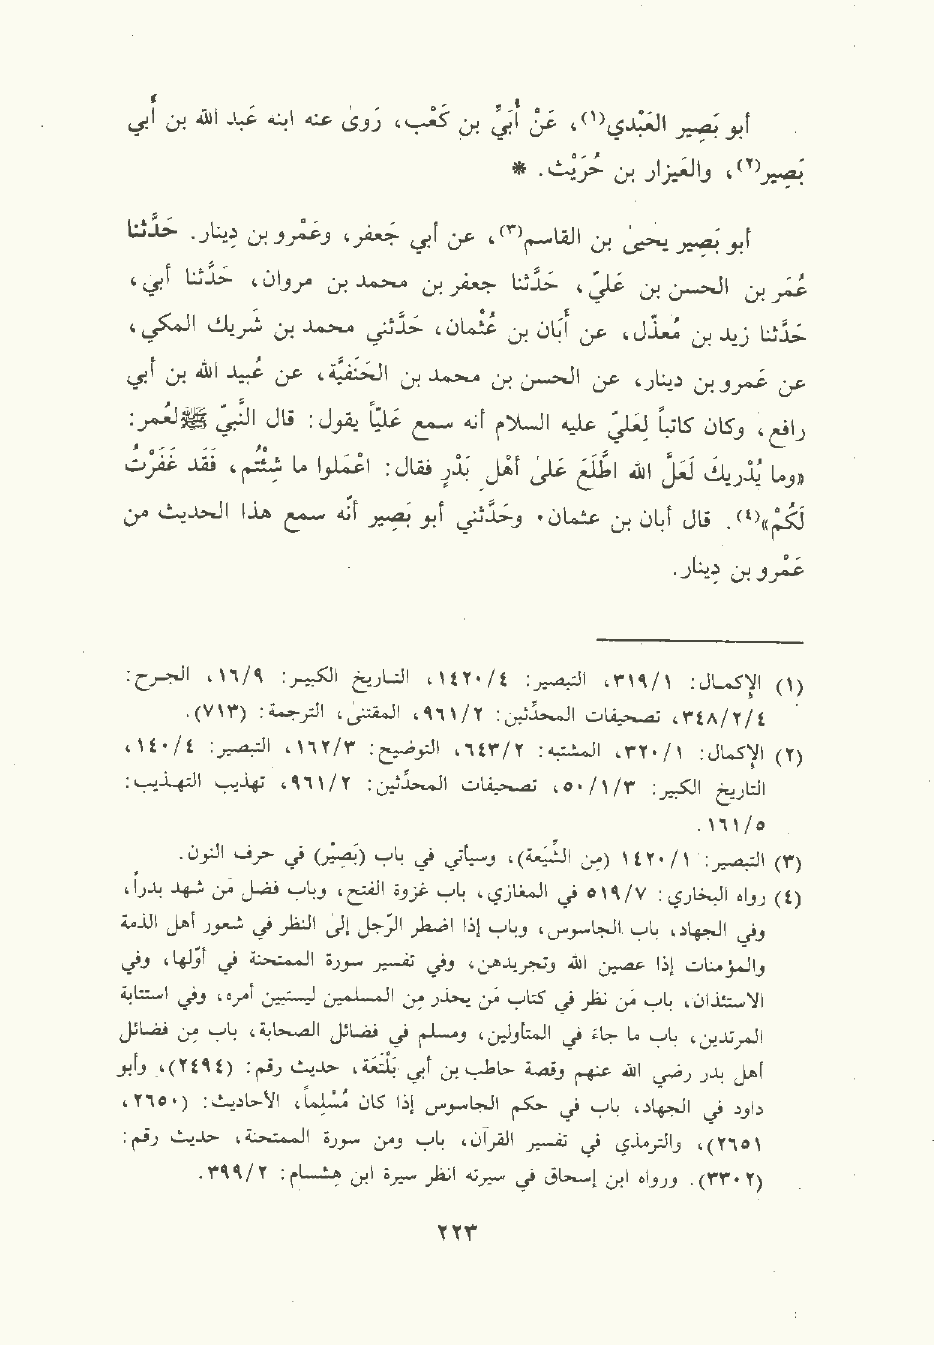 أبو بَصِير العَبْدي(١)، عَنْ أُبَيِّ بن كَعْب، رَوَى عنه ابنه عَبد الله بن أَبي
بَصِير(٢)، والعَيزار بن حُرَيْث. *
أبو بَصِير يَحيىٰ بن القاسم(٣)، عن أبي جَعفر، وعَمْرو بن دِينار. حَدَّثنا
عُمَر بن الحسن بن عَليّ، حَدَّثنا جعفر بن محمد بن مروان، حَدَّثنا أبي،
حَدَّثنا زيد بن مُعذّل، عن أَبَان بن عُثْمان، حَدَّثني محمد بن شَريك المكي،
عن عَمرو بن دينار، عن الحسن بن محمد بن الحَنَفيَّة، عن عُبيد الله بن أبي
رافع، وكان كاتباً لِعَليّ عليه السلام أنه سمع عَليّاً يقول: قال النَّبيّ ﷺ لعُمر:
«وما يُدْريكَ لَعَلَّ الله اطَّلَعَ عَلىٰ أَهْلِ بَدْرٍ فقال: اعْمَلوا ما شِئْتُم، فَقَد غَفَرْتُ
لَكُمْ»(٤). قال أبان بن عثمان. وحَدَّثني أبو بَصِير أنّه سمع هذا الحديث من
عَمْرو بن دِينار.
(١) الإكمال: ٣١٩/١، التبصير: ١٤٢٠/٤، التاريخ الكبير: ١٦/٩، الجرح:
٣٤٨/٢/٤، تصحيفات المحدِّثين: ٩٦١/٢، المقتنىٰ، الترجمة: (٧١٣).
(٢) الإكمال: ٣٢٠/١، المشتبه: ٦٤٣/٢، التوضيح: ١٦٢/٣، التبصير: ١٤٠/٤،
التاريخ الكبير: ٥٠/١/٣، تصحيفات المحدِّثين: ٩٦١/٢، تهذيب التهذيب:
١٦١/٥.
(٣) التبصير: ١٤٢٠/١ (مِن الشِّيعَة)، وسيأتي في باب (بَصِيْر) في حرف النون.
(٤) رواه البخاري: ٥١٩/٧ في المغازي، باب غزوة الفتح، وباب فضل مَن شهد بدراً،
وفي الجهاد، باب الجاسوس، وباب إذا اضطر الرَّجل إلىٰ النظر في شعور أهل الذمة
والمؤمنات إذا عصين الله وتجريدهن، وفي تفسير سورة الممتحنة في أوّلها، وفي
الاستئذان، باب مَن نظر في كتاب مَن يحذر مِن المسلمين ليستبين أمره، وفي استتابة
المرتدين، باب ما جاء في المتأولين، ومسلم في فضائل الصحابة، باب مِن فضائل
أهل بدر رضي الله عنهم وقصة حاطب بن أبي بَلْتَعَة، حديث رقم: (٢٤٩٤)، وأبو
داود في الجهاد، باب في حكم الجاسوس إذا كان مُسْلِماً، الأحاديث: (٢٦٥٠،
٢٦٥١)، والترمذي في تفسير القرآن، باب ومن سورة الممتحنة، حديث رقم:
(٣٣٠٢). ورواه ابن إسحاق في سيرته انظر سيرة ابن هِشام: ٣٩٩/٢.
٢٢٣